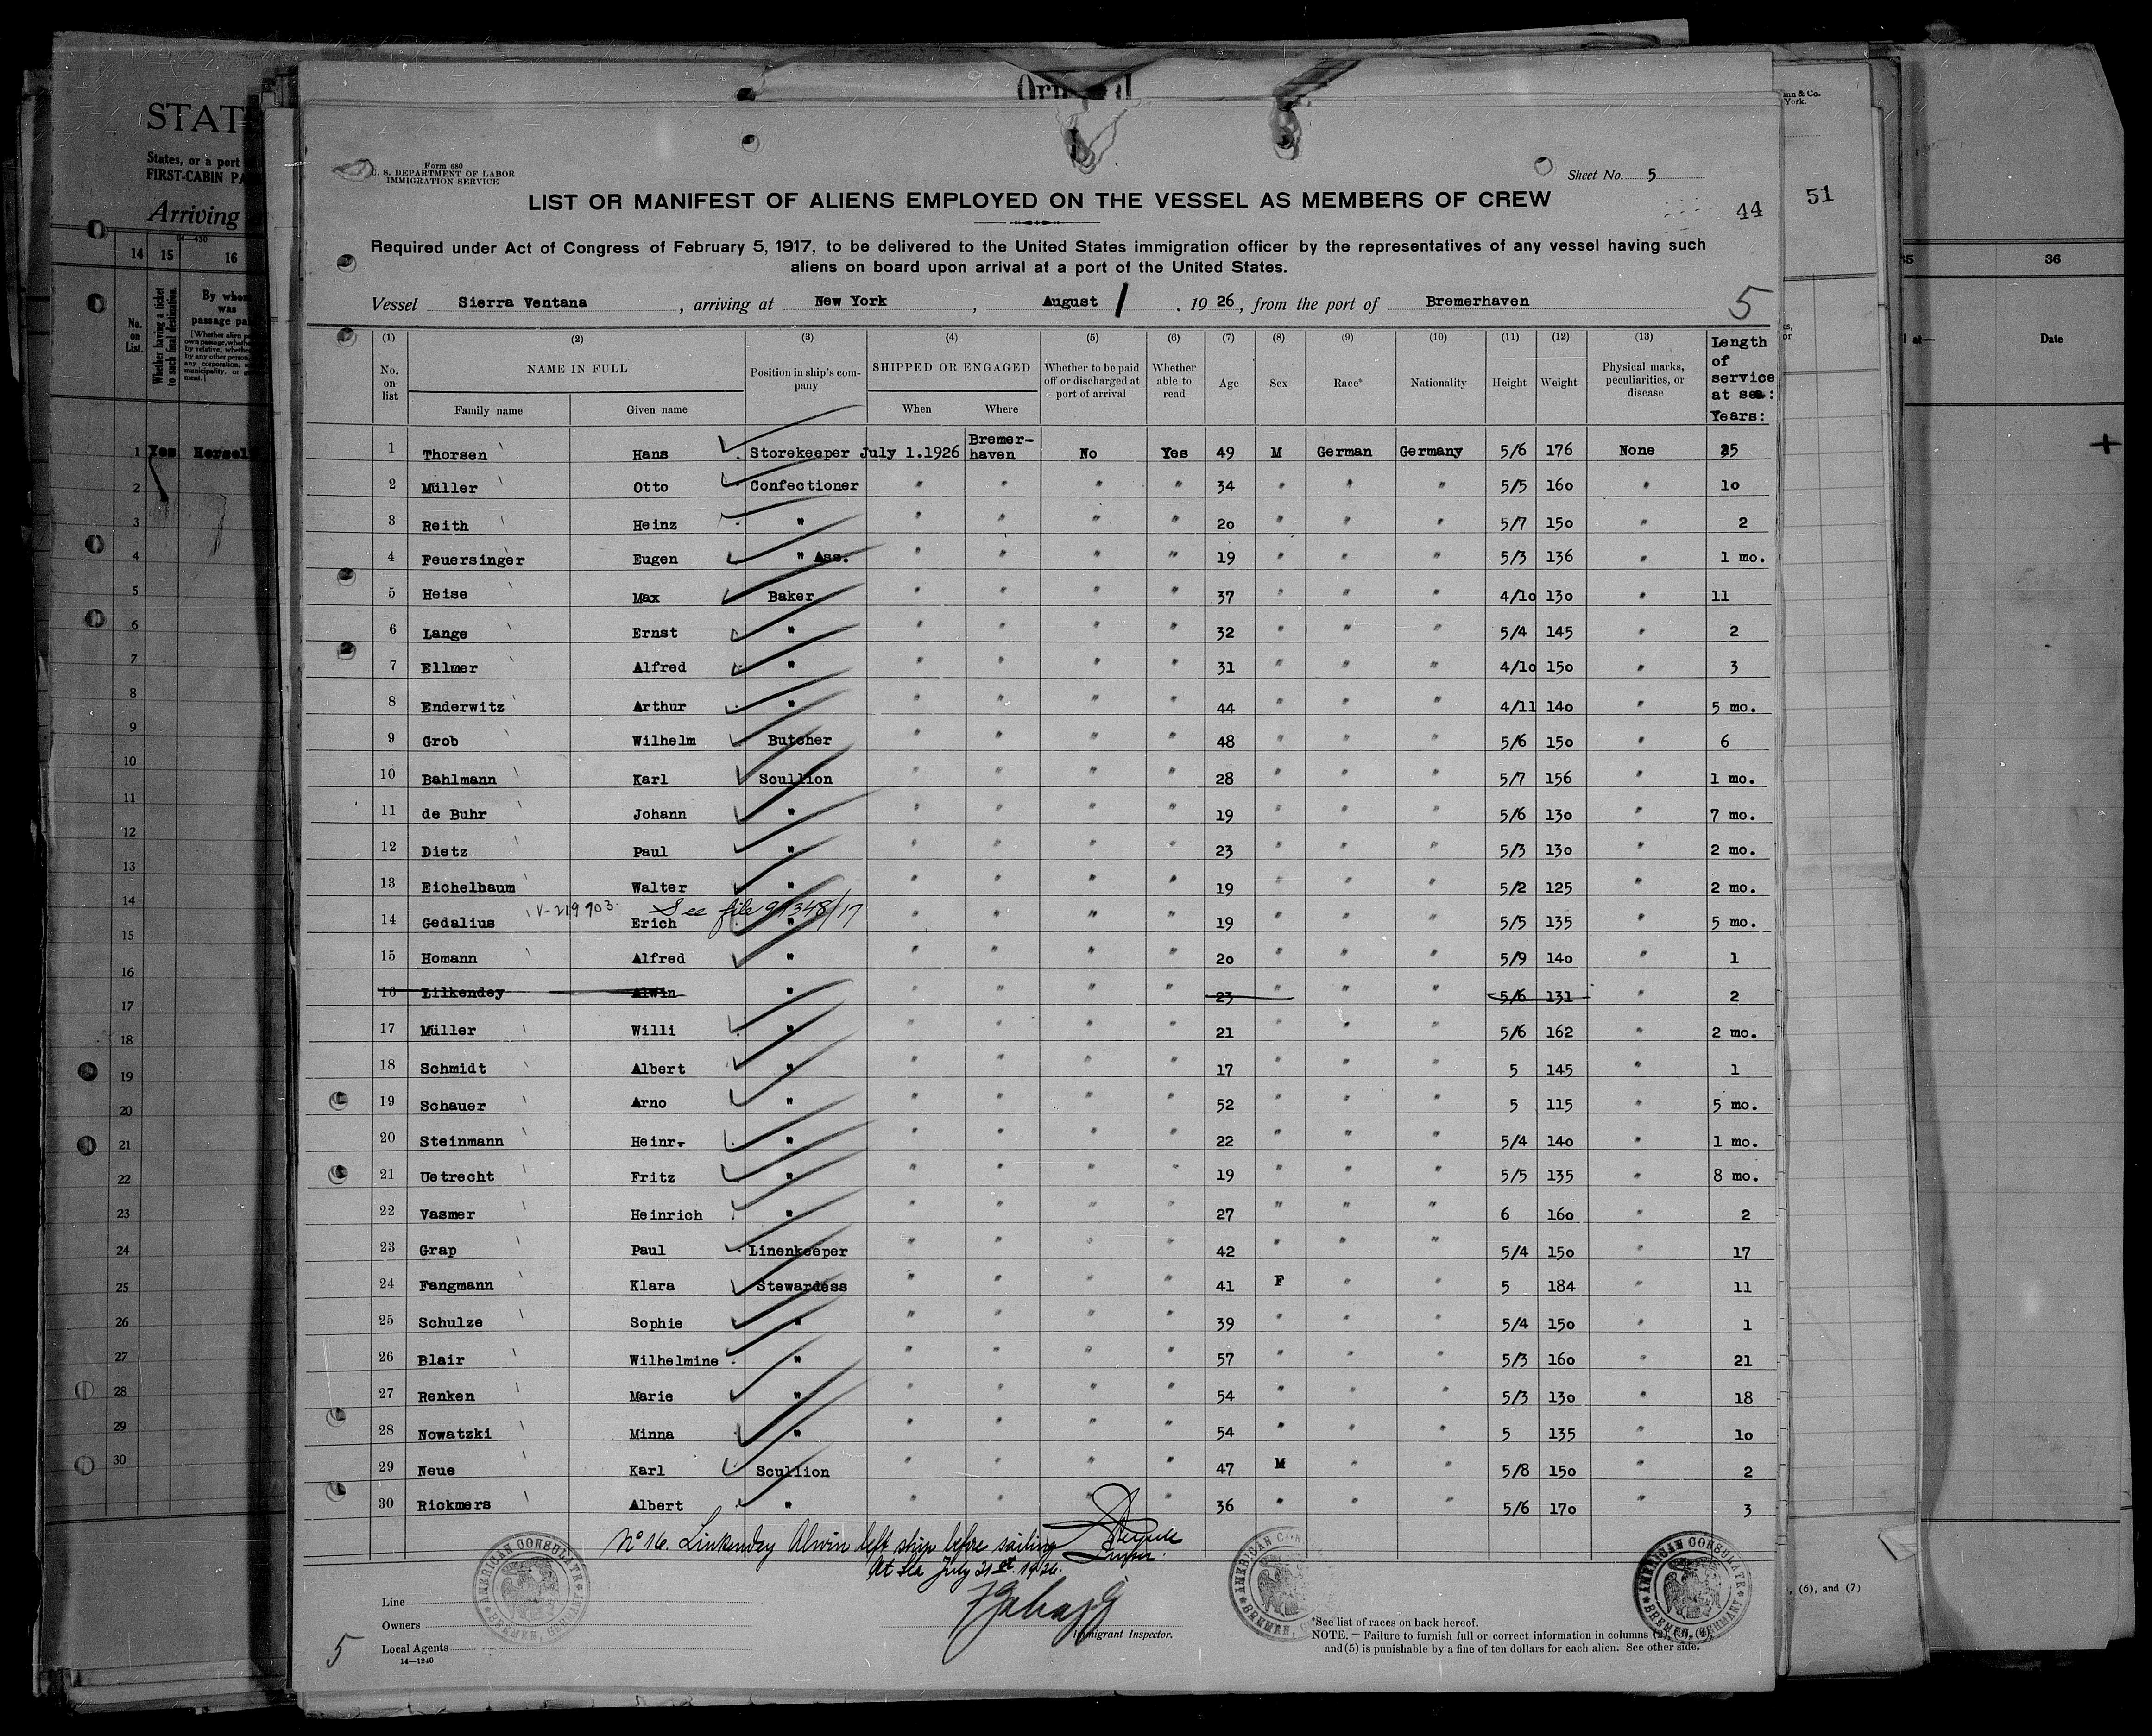 Original
STAT
States, or a port
FIRST-CABIN PA
Arriving
14—430
14 15 16
No. on List.
Whether having a ticket to such final destination.
By whom was passage pa
1 Yes Herself
2
3
4
5
6
7
8
9
10
11
12
13
14
15
16
17
18
19
20
21
22
23
24
25
26
27
28
29
30
Form 680
U. S. DEPARTMENT OF LABOR
IMMIGRATION SERVICE
Sheet No. 5
LIST OR MANIFEST OF ALIENS EMPLOYED ON THE VESSEL AS MEMBERS OF CREW
44
51
Required under Act of Congress of February 5, 1917, to be delivered to the United States immigration officer by the representatives of any vessel having such
aliens on board upon arrival at a port of the United States.
Vessel Sierra Ventana, arriving at New York, August 1, 1926, from the port of Bremerhaven
5
(1) (2) (3) (4) (5) (6) (7) (8) (9) (10) (11) (12) (13)
No. on list NAME IN FULL Family name Given name Position in ship's company SHIPPED OR ENGAGED When Where Whether to be paid off or discharged at port of arrival Whether able to read Age Sex Race* Nationality Height Weight Physical marks, peculiarities, or disease Length of service at sea: Years:
1 Thorsen Hans Storekeeper July 1.1926 Bremer-haven No Yes 49 M German Germany 5/6 176 None 25
2 Müller Otto Confectioner " " " " 34 " " " 5/5 160 " 10
3 Reith Heinz " " " " " 20 " " " 5/7 150 " 2
4 Feuersinger Eugen " Ass. " " " " 19 " " " 5/3 136 " 1 mo.
5 Heise Max Baker " " " " 37 " " " 4/10 130 " 11
6 Lange Ernst " " " " " 32 " " " 5/4 145 " 2
7 Ellmer Alfred " " " " " 31 " " " 4/10 150 " 3
8 Enderwitz Arthur " " " " " 44 " " " 4/11 140 " 5 mo.
9 Grob Wilhelm Butcher " " " " 48 " " " 5/6 150 " 6
10 Bahlmann Karl Scullion " " " " 28 " " " 5/7 156 " 1 mo.
11 de Buhr Johann " " " " " 19 " " " 5/6 130 " 7 mo.
12 Dietz Paul " " " " " 23 " " " 5/3 130 " 2 mo.
13 Eichelbaum Walter " " " " " 19 " " " 5/2 125 " 2 mo.
V-219903. See file 99348/17
14 Gedalius Erich " " " " " 19 " " " 5/5 135 " 5 mo.
15 Homann Alfred " " " " " 20 " " " 5/9 140 " 1
16 Lilkendey Alwin " " " " " 23 " " " 5/6 131 " 2
17 Müller Willi " " " " " 21 " " " 5/6 162 " 2 mo.
18 Schmidt Albert " " " " " 17 " " " 5 145 " 1
19 Schauer Arno " " " " " 52 " " " 5 115 " 5 mo.
20 Steinmann Heinr. " " " " " 22 " " " 5/4 140 " 1 mo.
21 Uetrecht Fritz " " " " " 19 " " " 5/5 135 " 8 mo.
22 Vasmer Heinrich " " " " " 27 " " " 6 160 " 2
23 Grap Paul Linenkeeper " " " " 42 " " " 5/4 150 " 17
24 Fangmann Klara Stewardess " " " " 41 F " " 5 184 " 11
25 Schulze Sophie " " " " " 39 " " " 5/4 150 " 1
26 Blair Wilhelmine " " " " " 57 " " " 5/3 160 " 21
27 Renken Marie " " " " " 54 " " " 5/3 130 " 18
28 Nowatzki Minna " " " " " 54 " " " 5 135 " 10
29 Neue Karl Scullion " " " " 47 M " " 5/8 150 " 2
30 Rickmers Albert " " " " " 36 " " " 5/6 170 " 3
No 16. Linkendey Alwin left ship before sailing
At sea July 21st 1926.
AMERICAN CONSULATE BREMEN, GERMANY
AMERICAN CONSULATE BREMEN, GERMANY
AMERICAN CONSULATE BREMEN, GERMANY
Line
Owners
Local Agents
14—1240
5
Immigrant Inspector.
*See list of races on back hereof.
NOTE.—Failure to furnish full or correct information in columns (2), (3), (4)
and (5) is punishable by a fine of ten dollars for each alien. See other side.
nn & Co.
York.
35 36
at— Date
, (6), and (7)